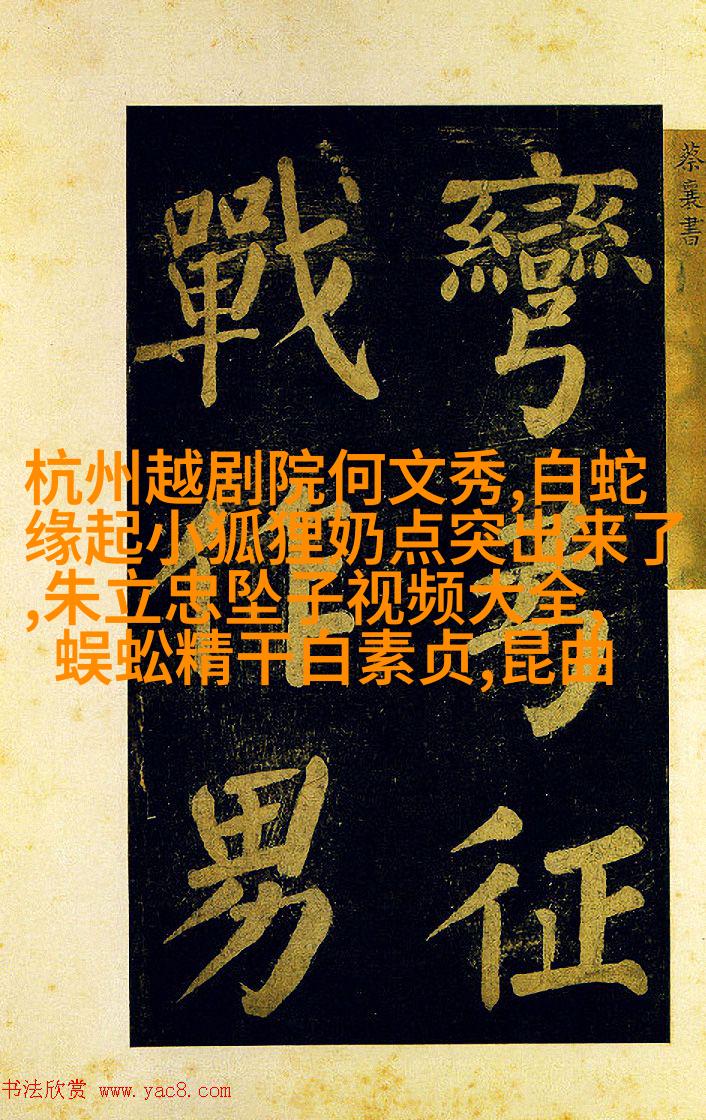 蔡襄書
彎征
戰男
杭州越剧院何文秀,白蛇
缘起小狐狸奶点突出来了
,朱立忠坠子视频大全,
蜈蚣精干白素贞,昆曲
书法欣赏 www.yac8.com